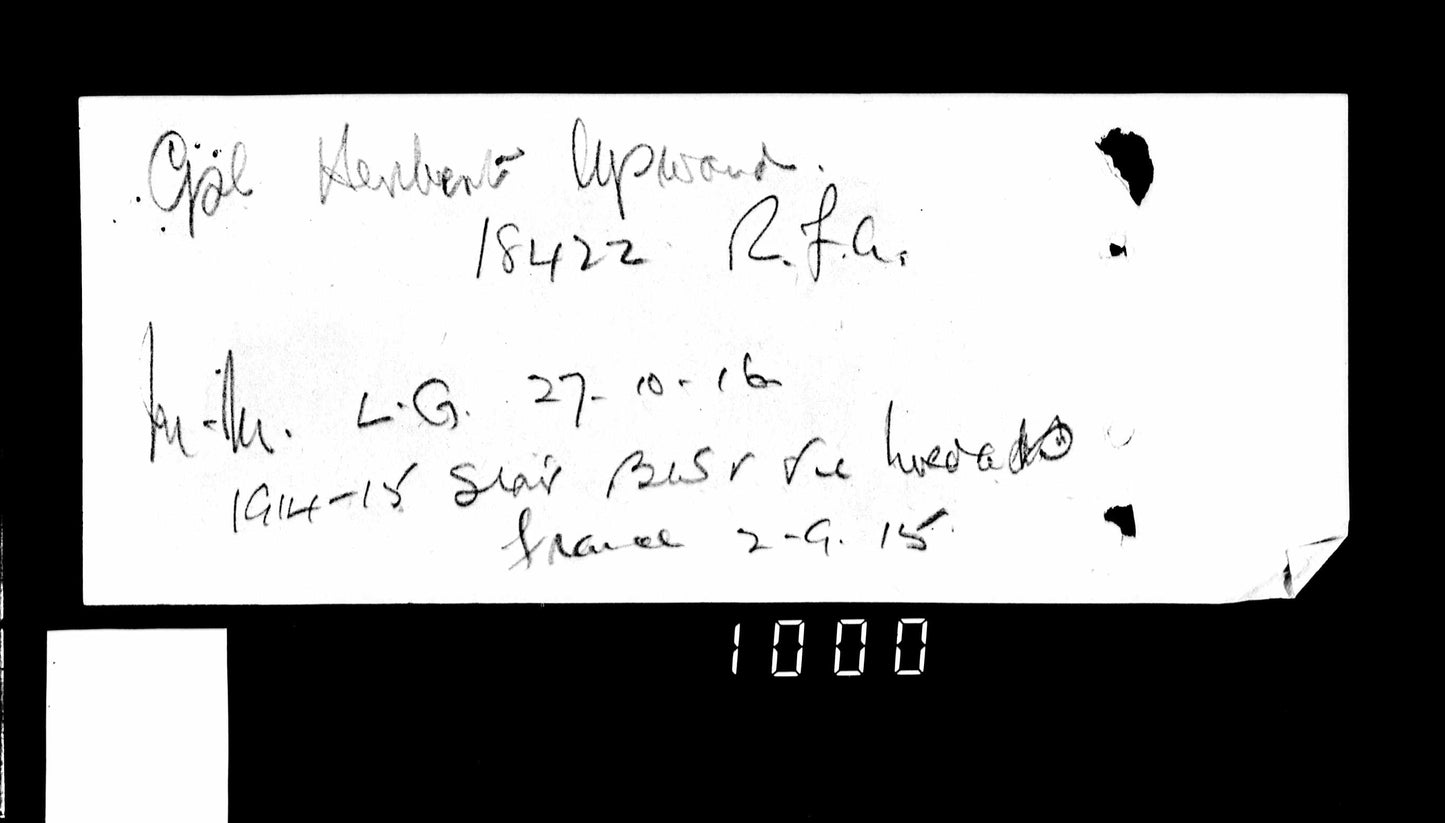 Cpl Herbert Upward.
18422 R.F.A.
M.M. L.G. 27-10-16
1914-15 Star BWS & Vic Medals
France 2-9.15
1000